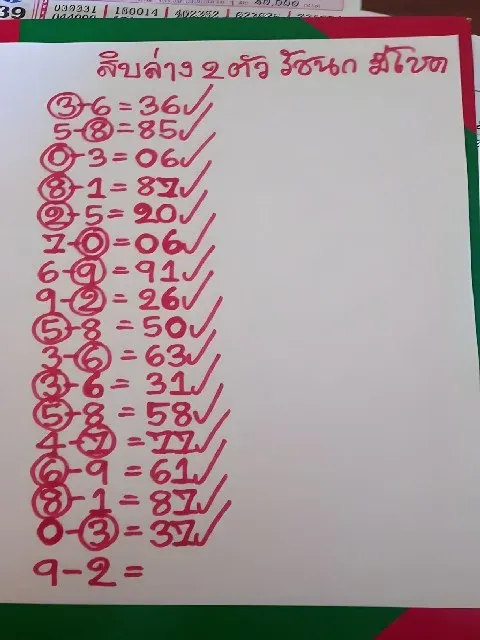 039331 | 180014 | 402352
39
สิบล่าง 2 ตัว รัชนก มีโชค
3-6 = 36✓
5-8 = 85✓
0-3 = 06✓
8-1 = 87✓
2-5 = 20✓
7-0 = 06✓
6-9 = 91✓
9-2 = 26✓
5-8 = 50✓
3-6 = 63✓
3-6 = 31✓
5-8 = 58✓
4-7 = 77✓
6-9 = 61✓
8-1 = 87✓
0-3 = 37✓
9-2 =